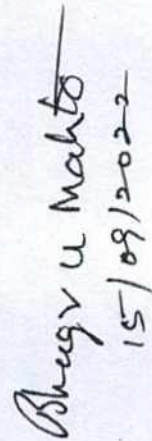 Bhugv U Mahto
15/09/2022